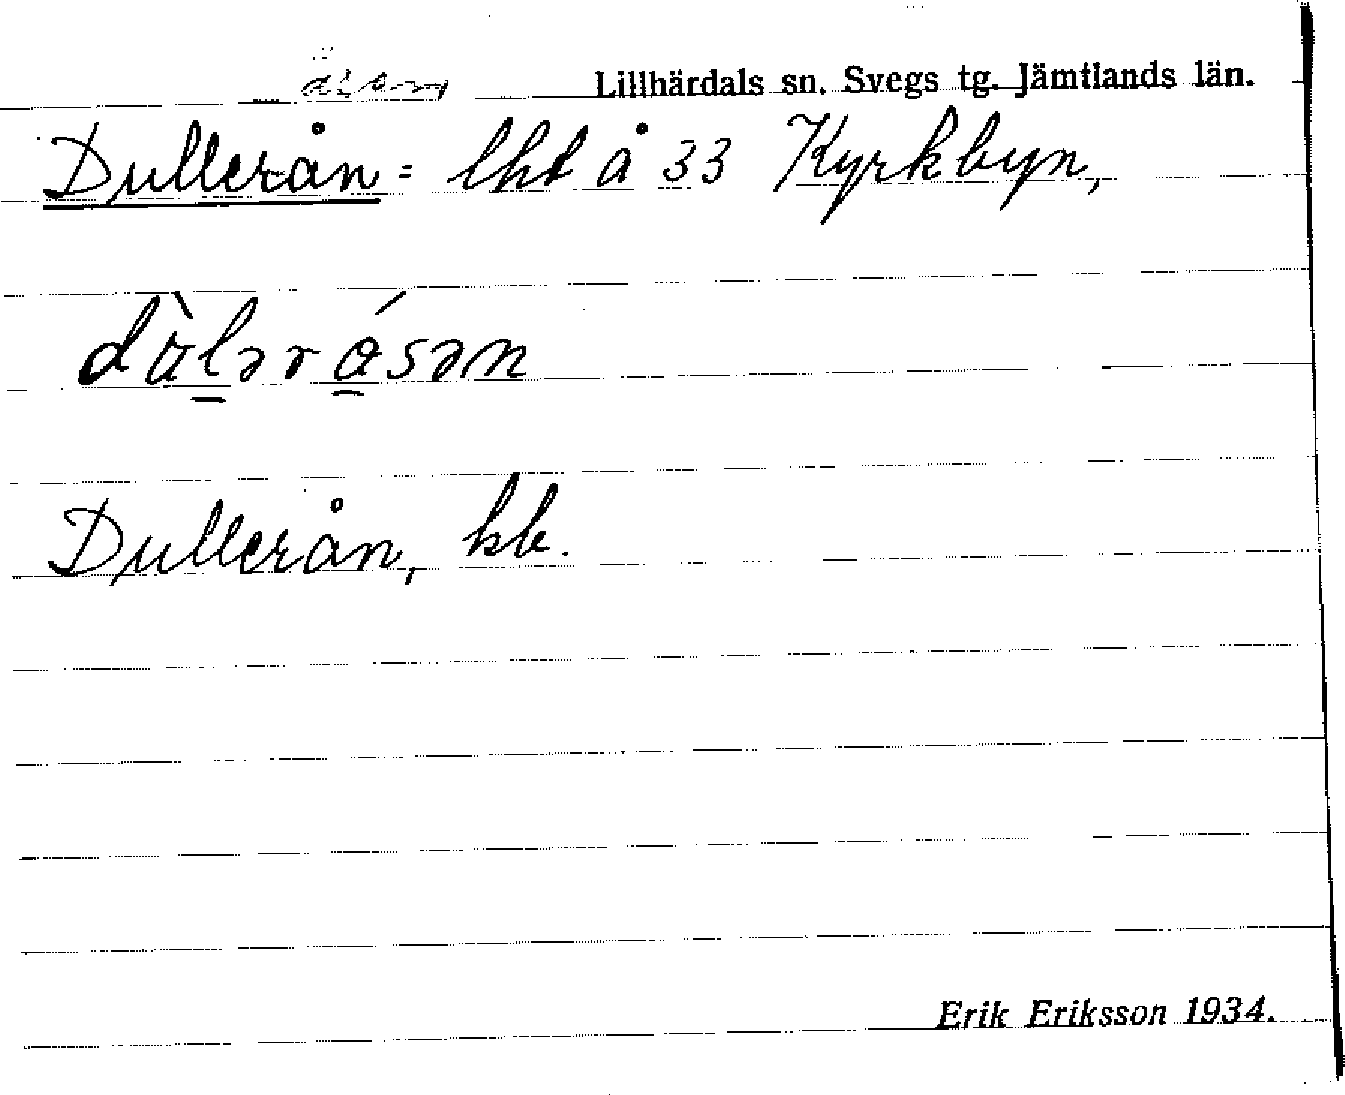 Lillhärdals sn. Svegs tg. Jämtlands län.
Dullerån = lht å 33 Kyrkbyn,
Dullerån, kb.
Erik Eriksson 1934.